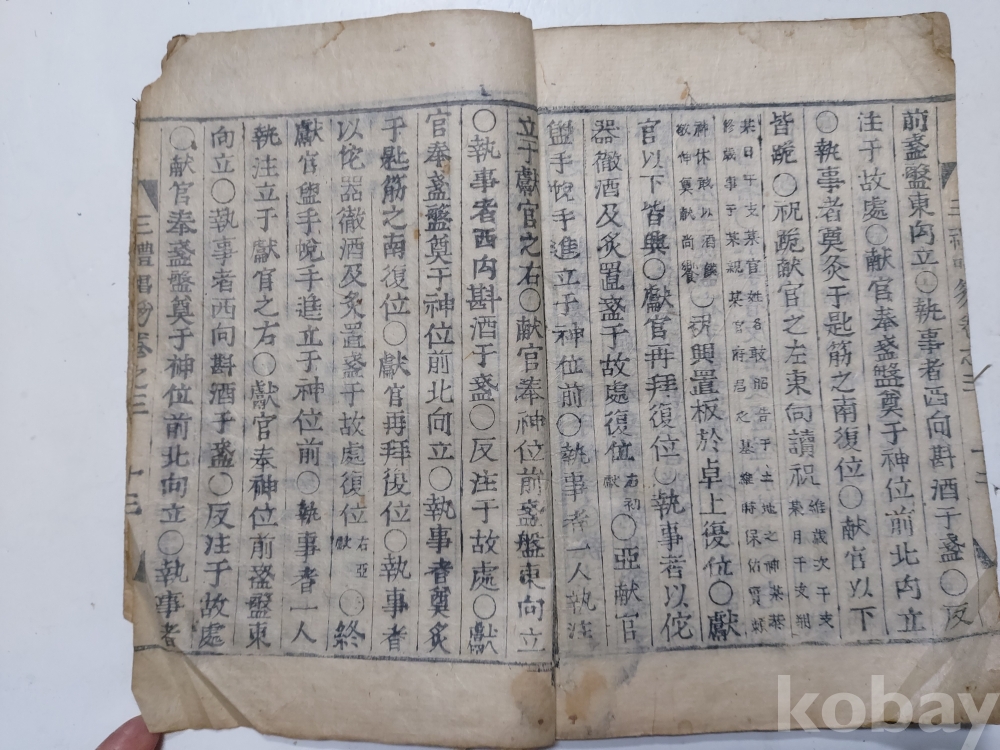 前盞盤東向立○執事者西向斟酒于盞○反
注于故處○獻官奉盞盤奠于神位前北向立
○執事者奠炙于匙筯之南復位○獻官以下
皆跪○祝跪獻官之左東向讀祝維歲次干支某月干支朔
某日干支某官姓名敢昭告于土地之神某
修歲事于某親某官府君之墓維時保佑實賴
神休敢以酒饌敬伸奠獻尙饗○祝興置板於卓上復位○獻
官以下皆興○獻官再拜復位○執事者以佗
器徹酒及炙置盞于故處復位右初獻○亞獻官
盥手帨手進立于神位前○執事者一人執注
立于獻官之右○獻官奉神位前盞盤東向立
○執事者西向斟酒于盞○反注于故處○獻
官奉盞盤奠于神位前北向立○執事者奠炙
于匙筯之南復位○獻官再拜復位○執事者
以佗器徹酒及炙置盞于故處復位右亞獻○終
獻官盥手帨手進立于神位前○執事者一人
執注立于獻官之右○獻官奉神位前盞盤東
向立○執事者西向斟酒于盞○反注于故處
○獻官奉盞盤奠于神位前北向立○執事者
三禮唱笏卷之三 十三
kobay